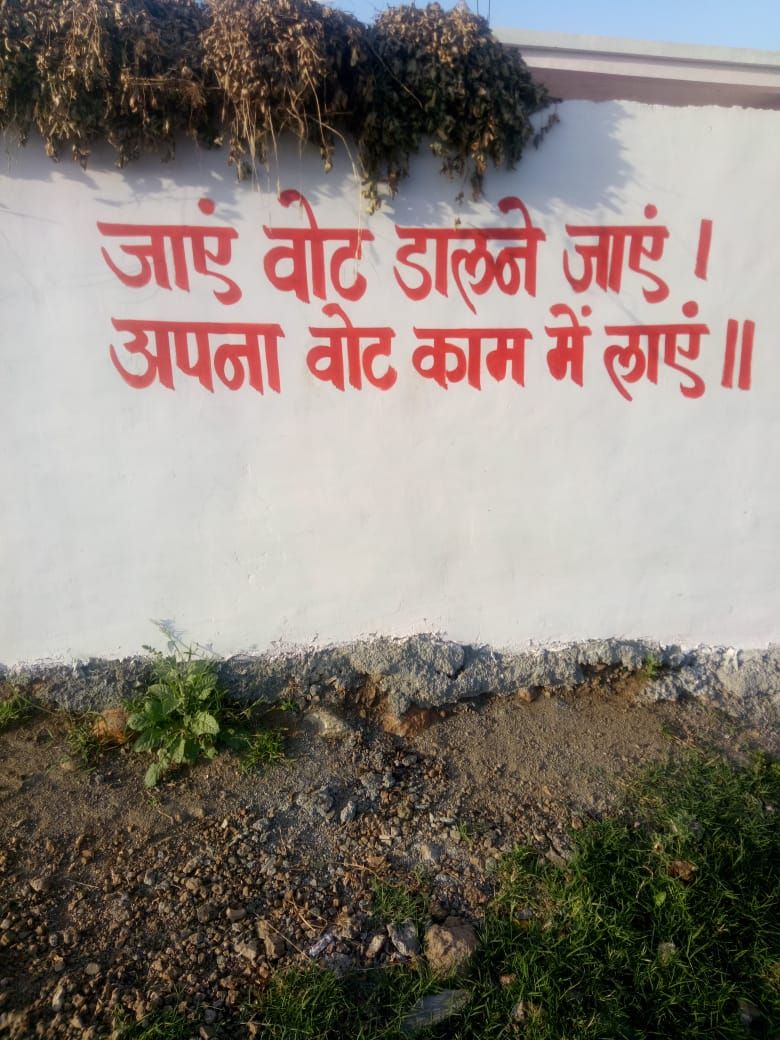 जाएं वोट डालने जाएं ।
अपना वोट काम में लाएं ॥